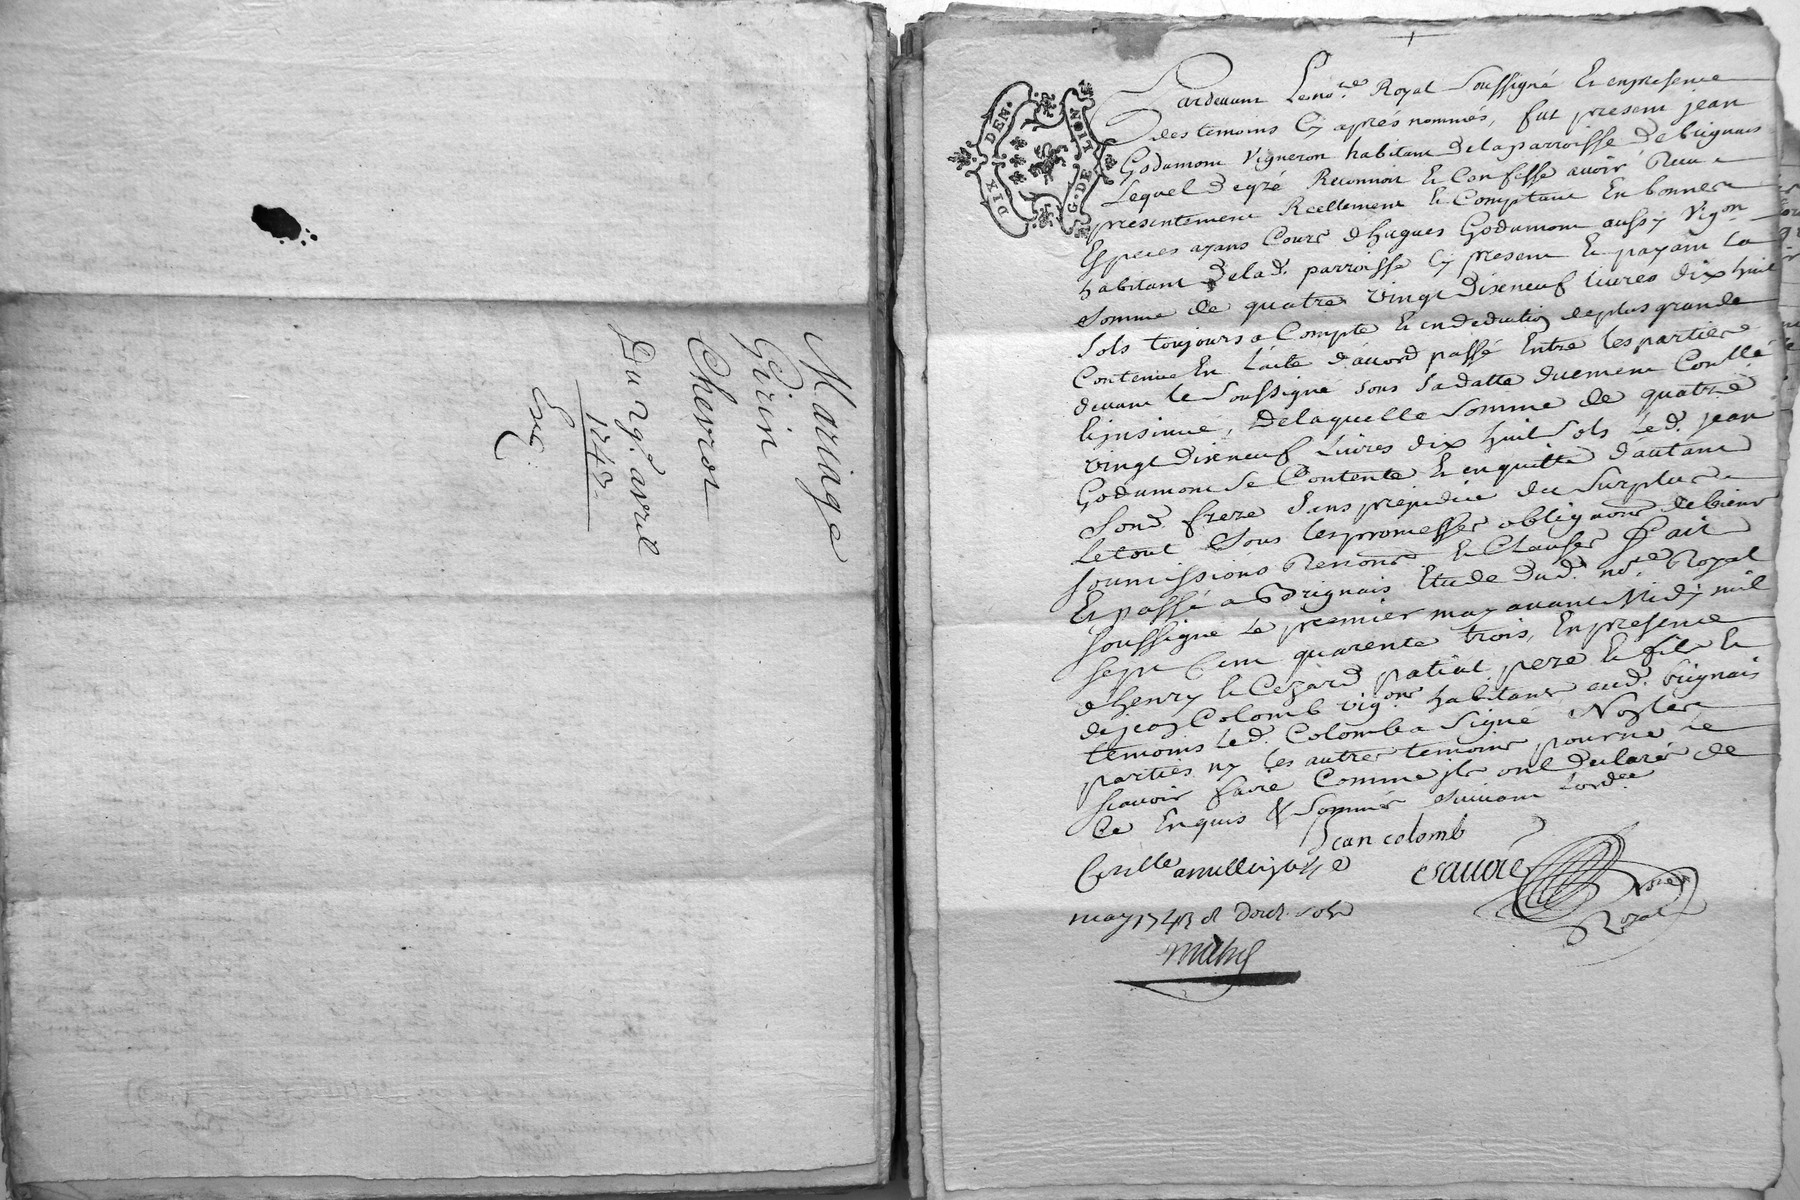 Mariage
Girin
Chevrot
Du 29.e avril
1743
Exé.
DIX DEN.
G. DE LION
Pardevant Le no.re Royal Soussigné Et en presence
des temoins Cy aprés nommés, fut present jean
Godumom Vigneron habitant de la parroisse de brignais
Lequel de gré Reconnoit et Confesse avoir Receu
presentement Reellement et Comptant En bonnes
Especes ayans Cours d'hugues Godumom aussy Vig.on
habitant de lad. parroisse Cy present Et payant La
Somme de quatre vingt dixneuf livres dix huit
Sols toujours a Compte Et en deduction de plus grande
Contenue En L'acte d'accord passé Entre les parties
devant le Soussigné sous Sa datte duement Conllé
Et insinué, De laquelle Somme de quatre
vingt dixneuf Livres dix huit Sols Led. jean
Godumom Se Contente Et en quitte d'autant
Sond. frere Sans prejudice du Surplus
Le tout Sous les promesses obligaons de biens
Soumissions Renons. et Clauses fait
Et passé a Brignais Etude dud. no.re Royal
Soussigné Le premier may avant Midy mil
sept Cent quarente trois, En presence
d'henry et Cezard patiat pere et fils Et
de jean Colomb vig.ons habitans aud. brignais
temoins Led. Colomb a Signé Non les
parties ny les autres temoins pour ne le
sçavoir faire Comme ils ont declaré de
Ce Enquis & Sommés suivant l'ord.ce
Jean colomb
may 1743 R douze sols
Royal